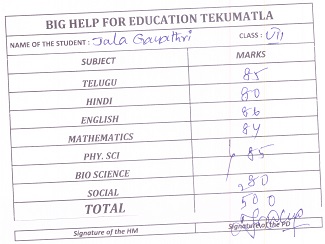 BIG HELP FOR EDUCATION TEKUMATLA
NAME OF THE STUDENT : Jala Gayathri CLASS : VII
SUBJECT MARKS
TELUGU 85
HINDI 80
ENGLISH 86
MATHEMATICS 84
PHY. SCI 85
BIO SCIENCE
SOCIAL 80
TOTAL 500
Signature of the HM Signature of the PD